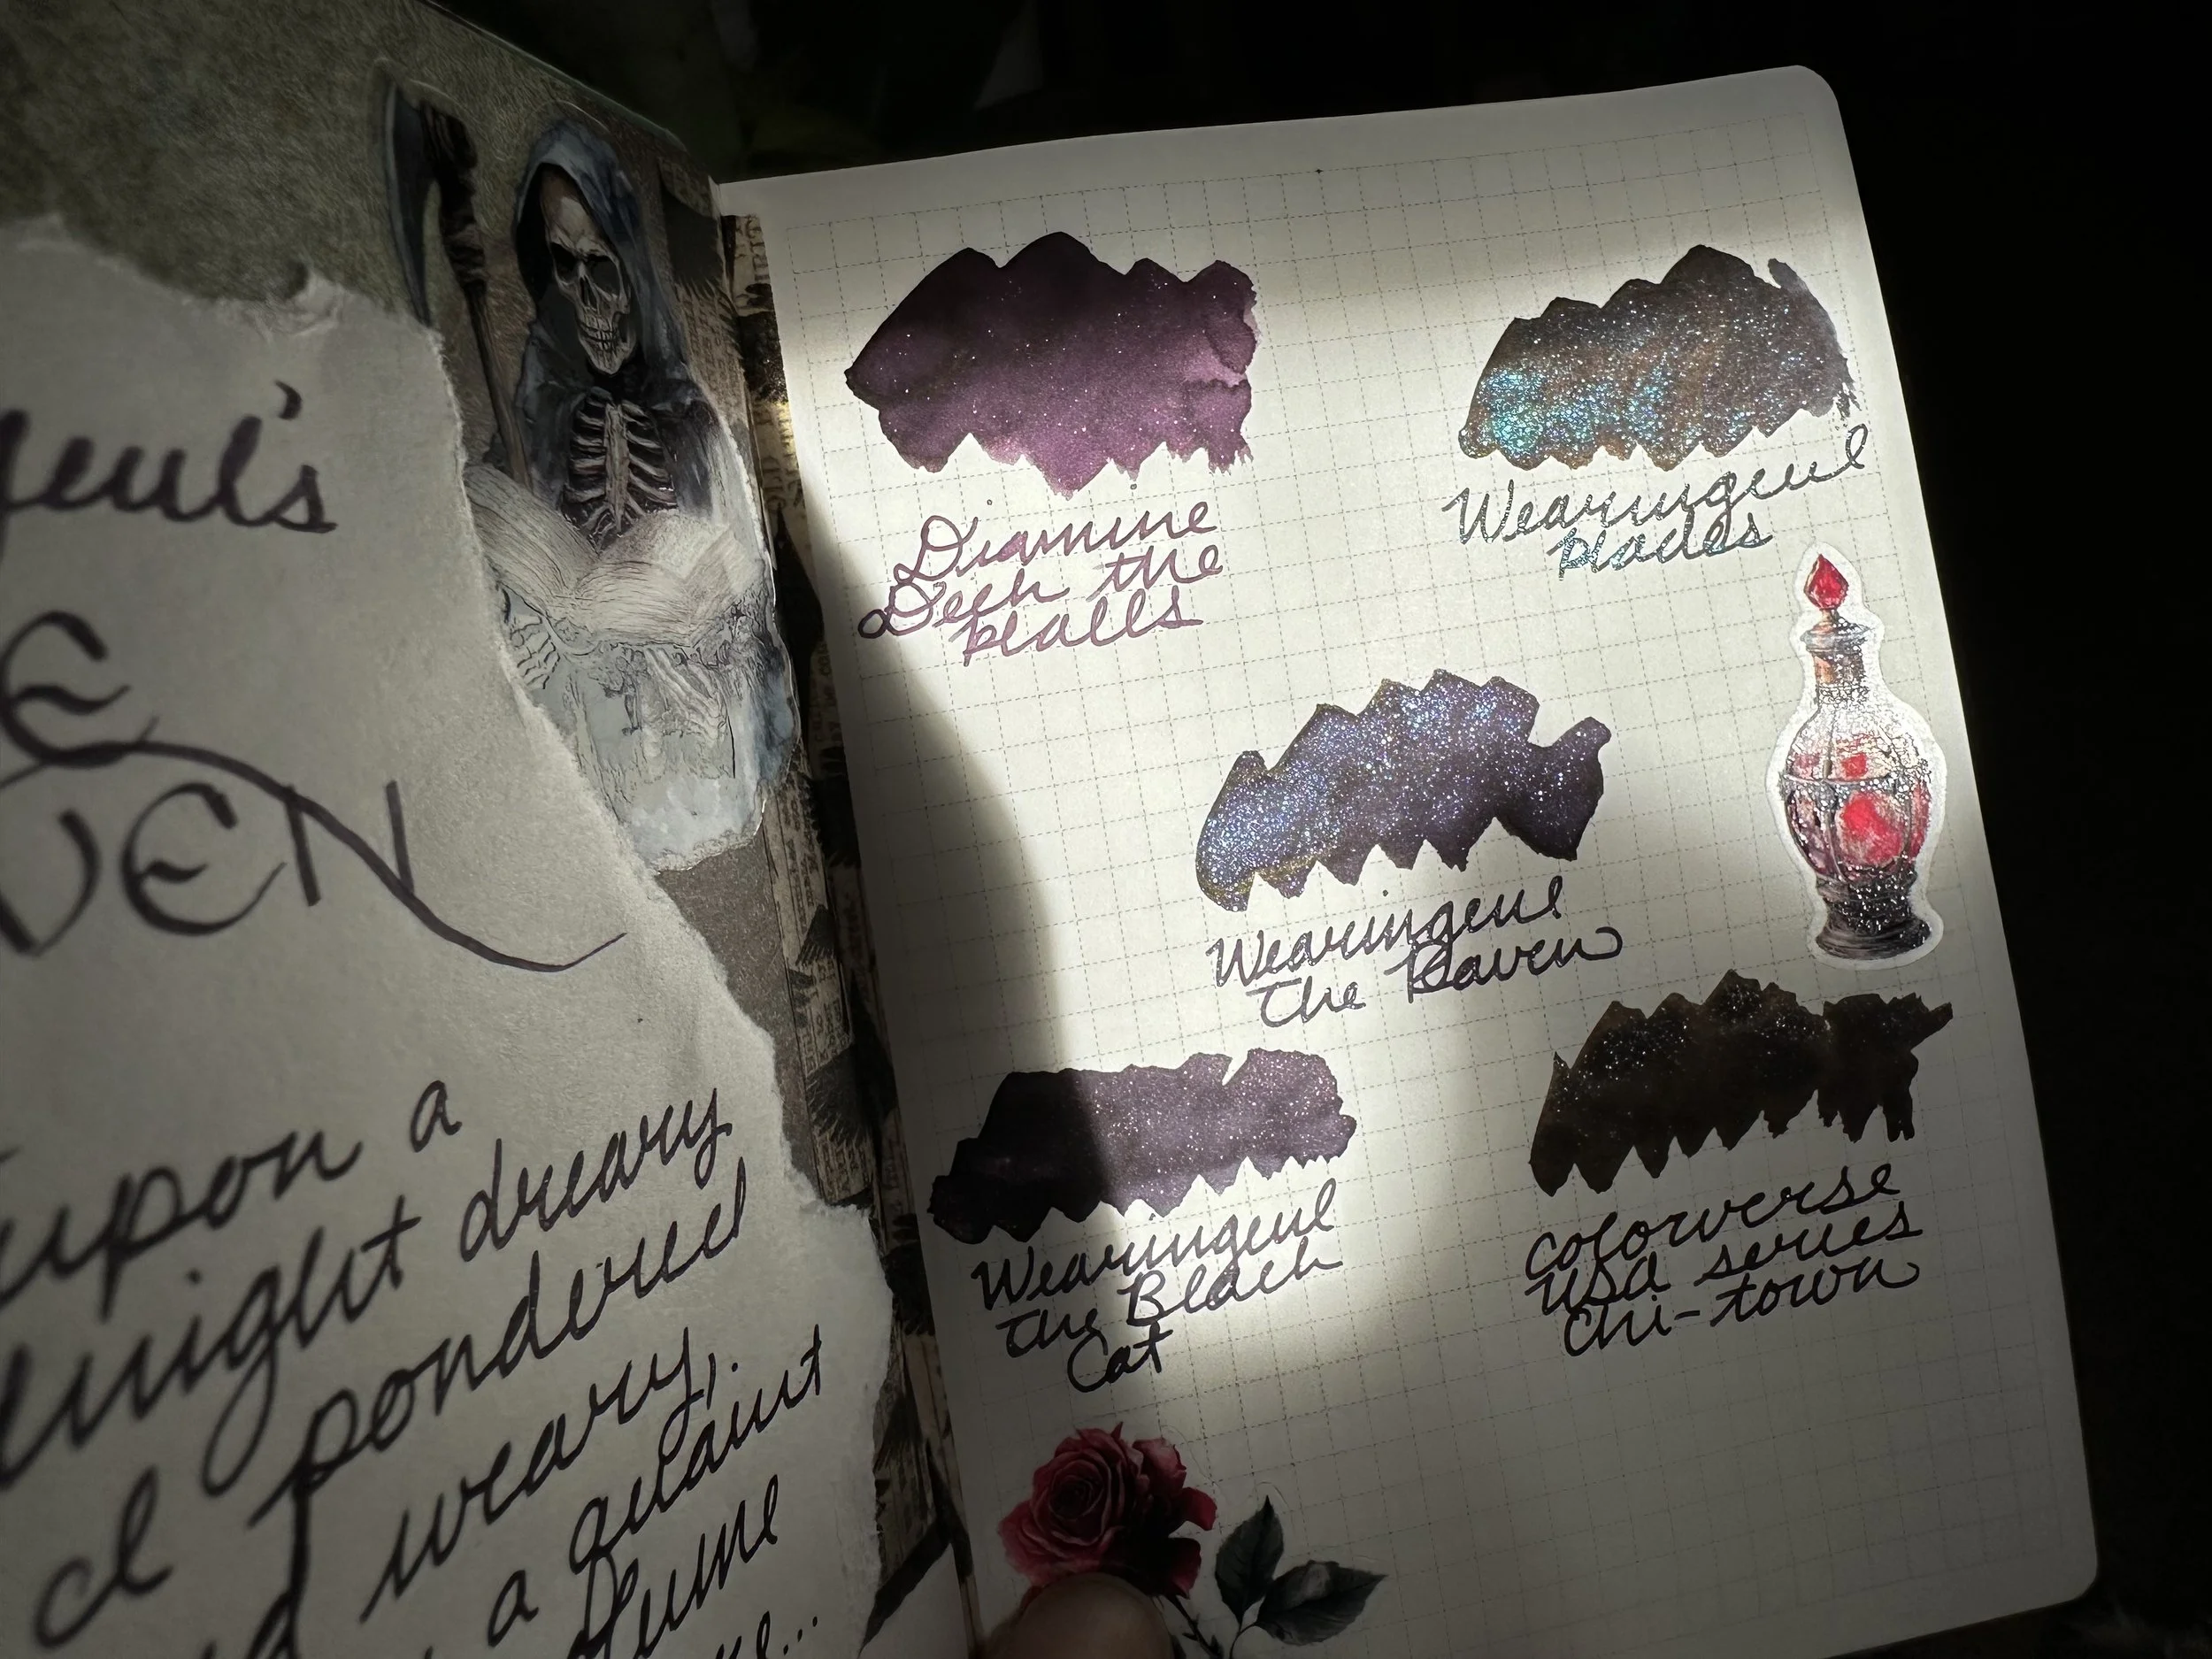 geul's
E
VEN
upon a
dnight dreary
I pondered
weary,
a quaint
a volume
Diamine
Deck the
Halls
Wearingeul
Hades
Wearingeul
The Raven
Wearingeul
The Black
Cat
Colorverse
USA series
Chi-town